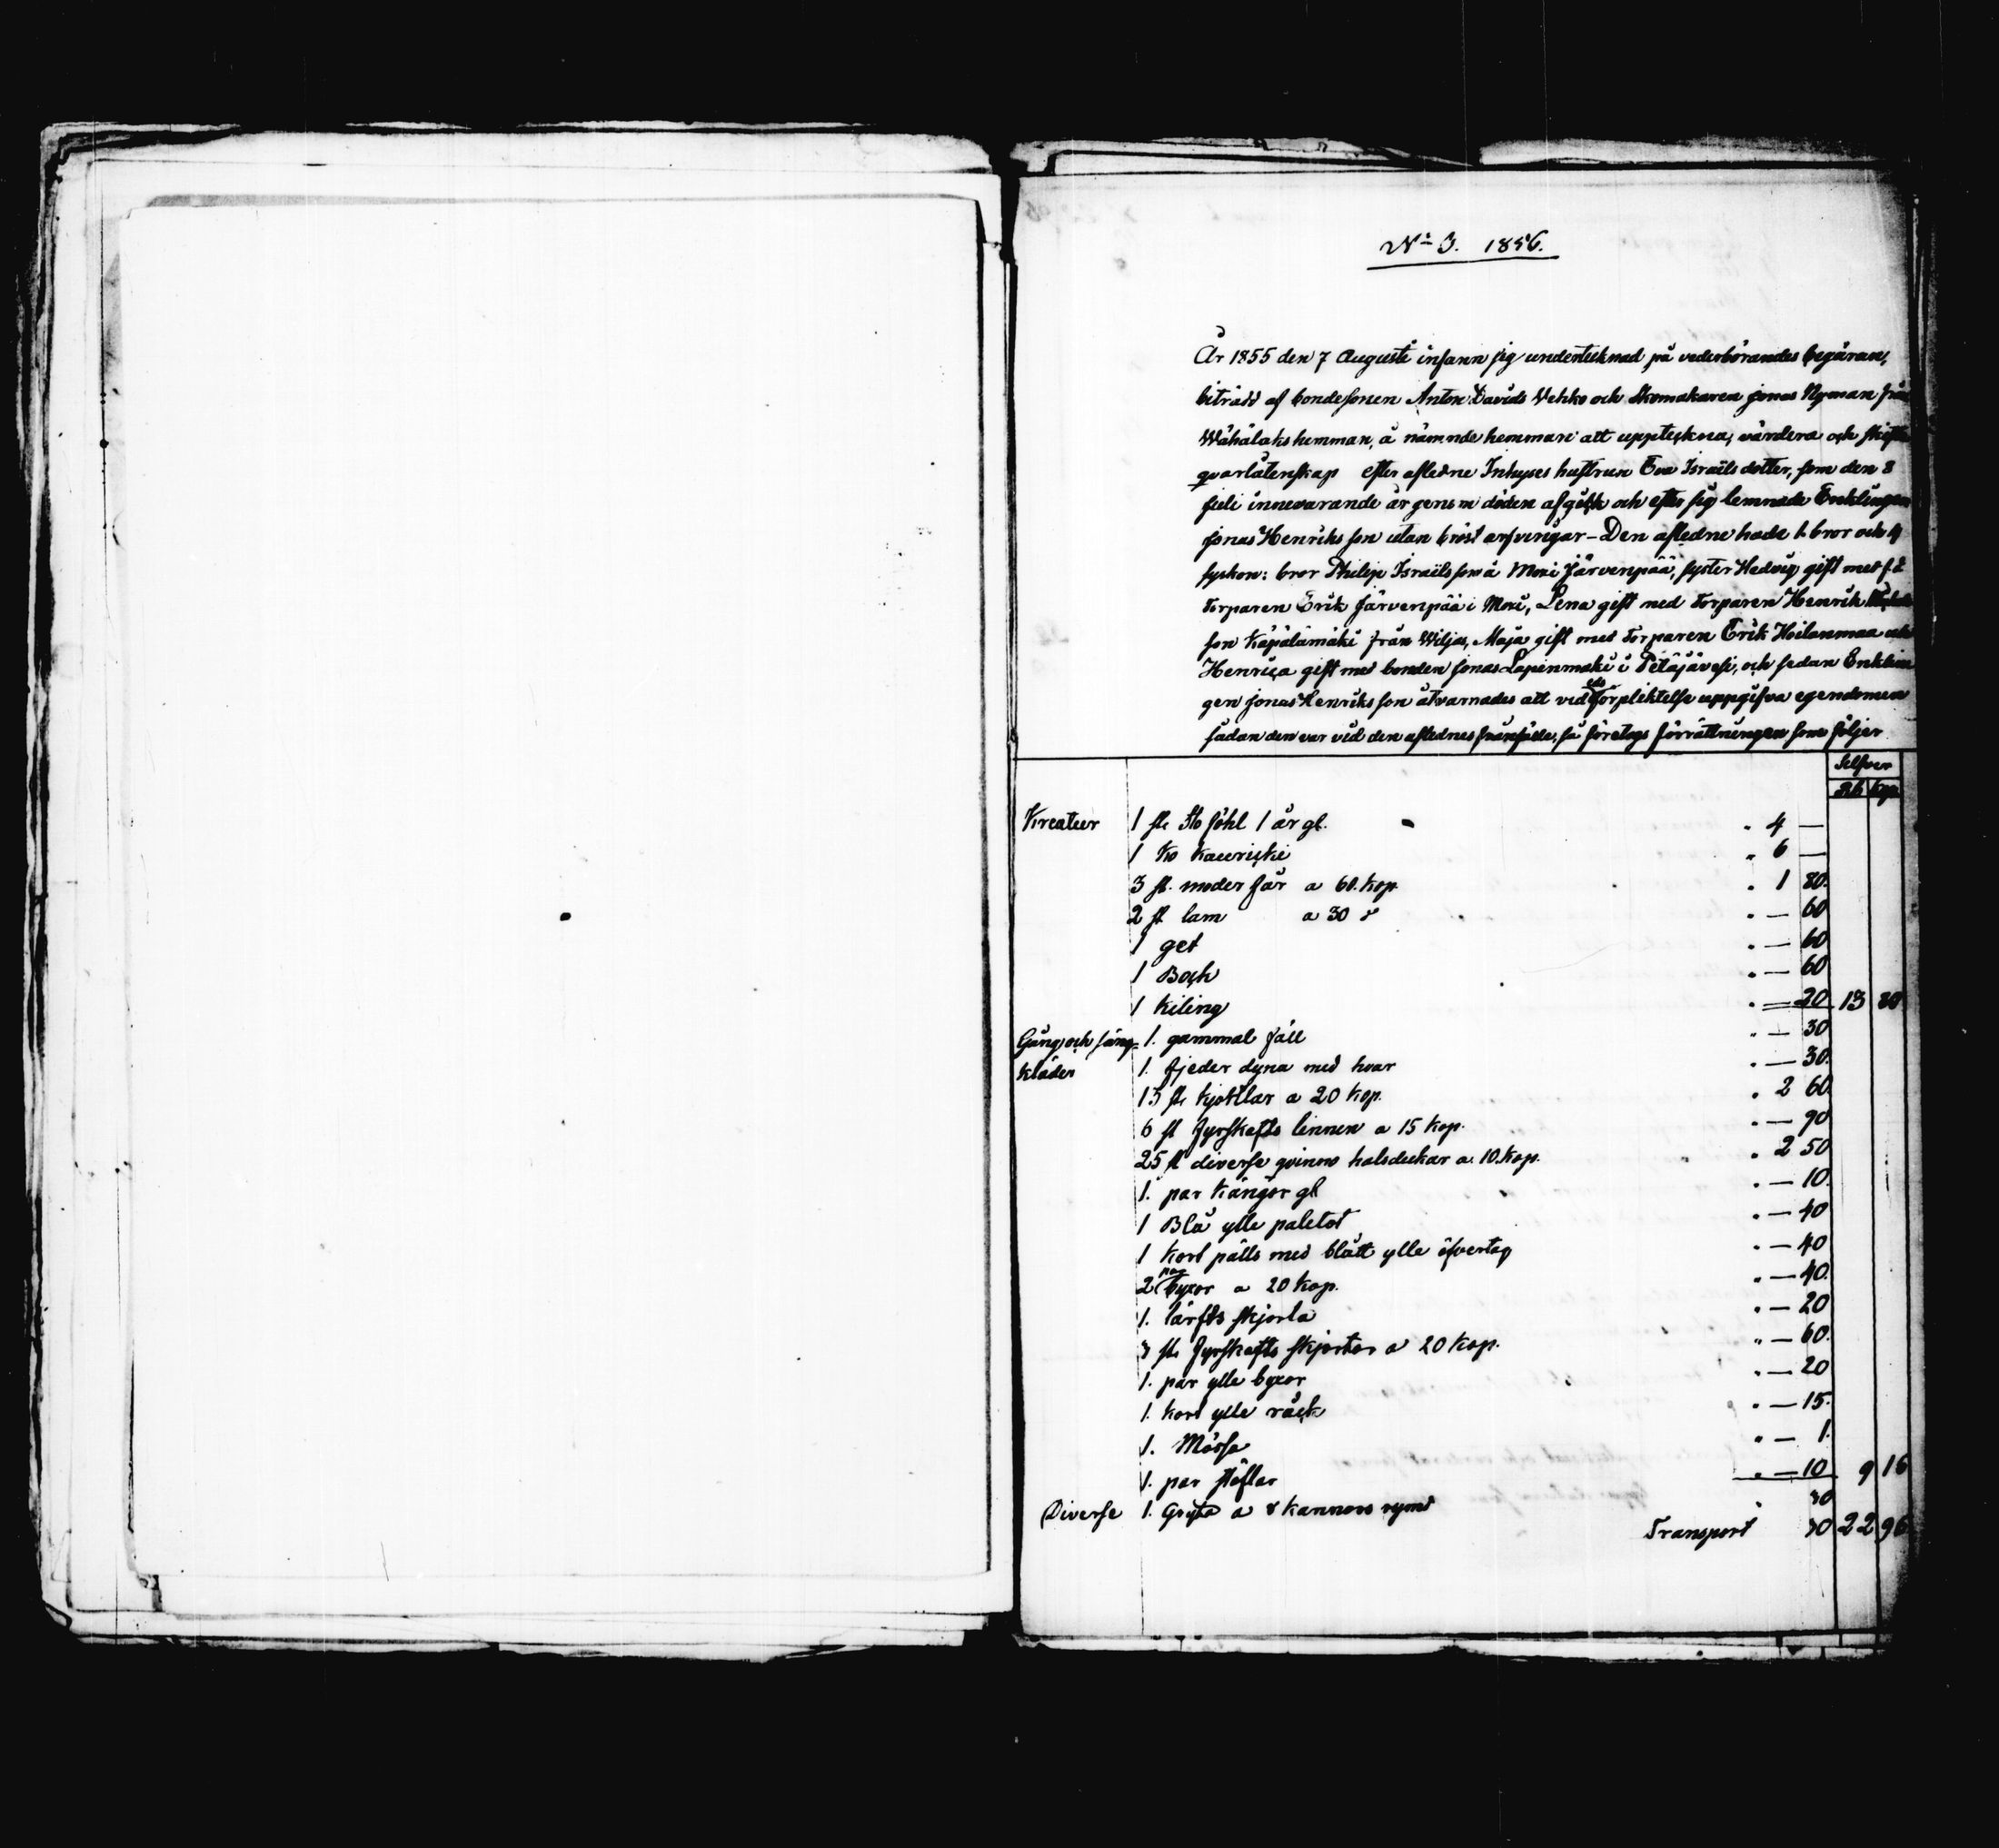 No 3. 1856.
År 1855 den 7 Augusti infann sig undertecknad på vederbörandes begäran,
biträdd af bondesonen Anton Davids Vehko och Skomakaren Jonas Nyman från
Wähälaks hemman, å nämnde hemman att uppteckna, värdera och skifta
qvarlåtenskap efter afledne Inhyses hustrun Eva Israëls dotter, som den 8
Juli innevarande år genom döden afgått och efter sig lemnade Enklingen
Jonas Henriks son utan bröst arfvingar – Den afledne hade 1 bror och 4
syskon: bror Philip Israëls son å Moxi Järvenpää, syster Hedvig gift med f.d
torparen Erik Järvenpää i Moxi, Lena gift med torparen Henrik
son Käpälämäki från Wiljas, Maja gift med torparen Erik Hoilanmaa och
Henrica gift med bonden Jonas Lapinmäki i Petäjävesi, och sedan Enklin
gen Jonas Henriks son åtvarnades att vid eds förpliktelse uppgifva egendomen
sådan den var vid den aflednes frånfälle, så företogs förrättningen som följer
Silfver
Rb Kop.
Kreatur 1 st. Sto föhl 1 år gl. " 4 —
1 Ko Kauriki " 6 —
3 st. moder får a 60. Kop. " 1 80.
2 st lam a 30 " " — 60
1 get " — 60
1 Bock " — 60
1 Kiling " — 20 13 80
Gång och säng- 1. gammal fäll " — 30
kläder 1. fjeder dyna med hvar " — 30.
13 st. kjortlar a 20 Kop. " 2 60.
6 st fyrskafts linnen a 15 Kop. " — 90
25 st diverse qvinno halsdukar a 10. Kop. " 2 50
1. par Kängor gl " — 10.
1 Blå ylle paletot " — 40
1 Kort pälts med blått ylle öfvertyg " — 40
2 par byxor a 20 Kop. " — 40.
1. lärfts skjorta " — 20
3 st. fyrskafts skjortor a 20 Kop. " — 60.
1. par ylle byxor " — 20
1. Kort ylle råck " — 15.
1. Mössa " — 1.
1. par stöflar " — 10 9 16
Diverse 1. Gryta a 8 Kannors rymd 30
Transport 30 22 96